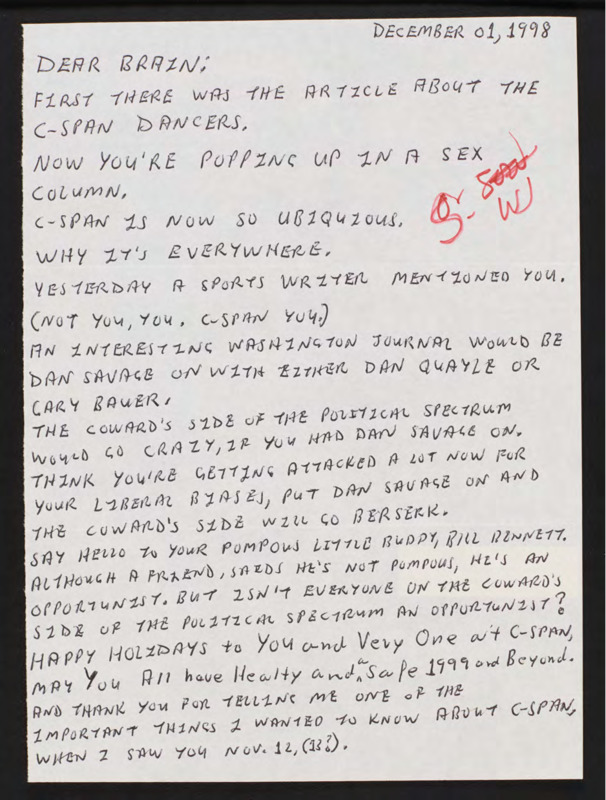 DECEMBER 01, 1998
DEAR BRAIN;
FIRST THERE WAS THE ARTICLE ABOUT THE
C-SPAN DANCERS.
NOW YOU'RE POPPING UP IN A SEX
COLUMN.
C-SPAN IS NOW SO UBIQUIOUS.
WHY IT'S EVERYWHERE.
YESTERDAY A SPORTS WRITER MENTIONED YOU.
(NOT YOU, YOU. C-SPAN YOU.)
AN INTERESTING WASHINGTON JOURNAL WOULD BE
DAN SAVAGE ON WITH EITHER DAN QUAYLE OR
GARY BAUER.
THE COWARD'S SIDE OF THE POLITICAL SPECTRUM
WOULD GO CRAZY, IF YOU HAD DAN SAVAGE ON.
THINK YOU'RE GETTING ATTACKED A LOT NOW FOR
YOUR LIBERAL BIASES, PUT DAN SAVAGE ON AND
THE COWARD'S SIDE WILL GO BERSERK.
SAY HELLO TO YOUR POMPOUS LITTLE BUDDY, BILL BENNETT.
ALTHOUGH A FRIEND, SAIDS HE'S NOT POMPOUS, HE'S AN
OPPORTUNIST. BUT ISN'T EVERYONE ON THE COWARD'S
SIDE OF THE POLITICAL SPECTRUM AN OPPORTUNIST?
HAPPY HOLIDAYS to You and Very One at C-SPAN,
MAY You All have Healty and a Safe 1999 and Beyond.
AND THANK YOU FOR TELLING ME ONE OF THE
IMPORTANT THINGS I WANTED TO KNOW ABOUT C-SPAN,
WHEN I SAW YOU NOV. 12, (13?).